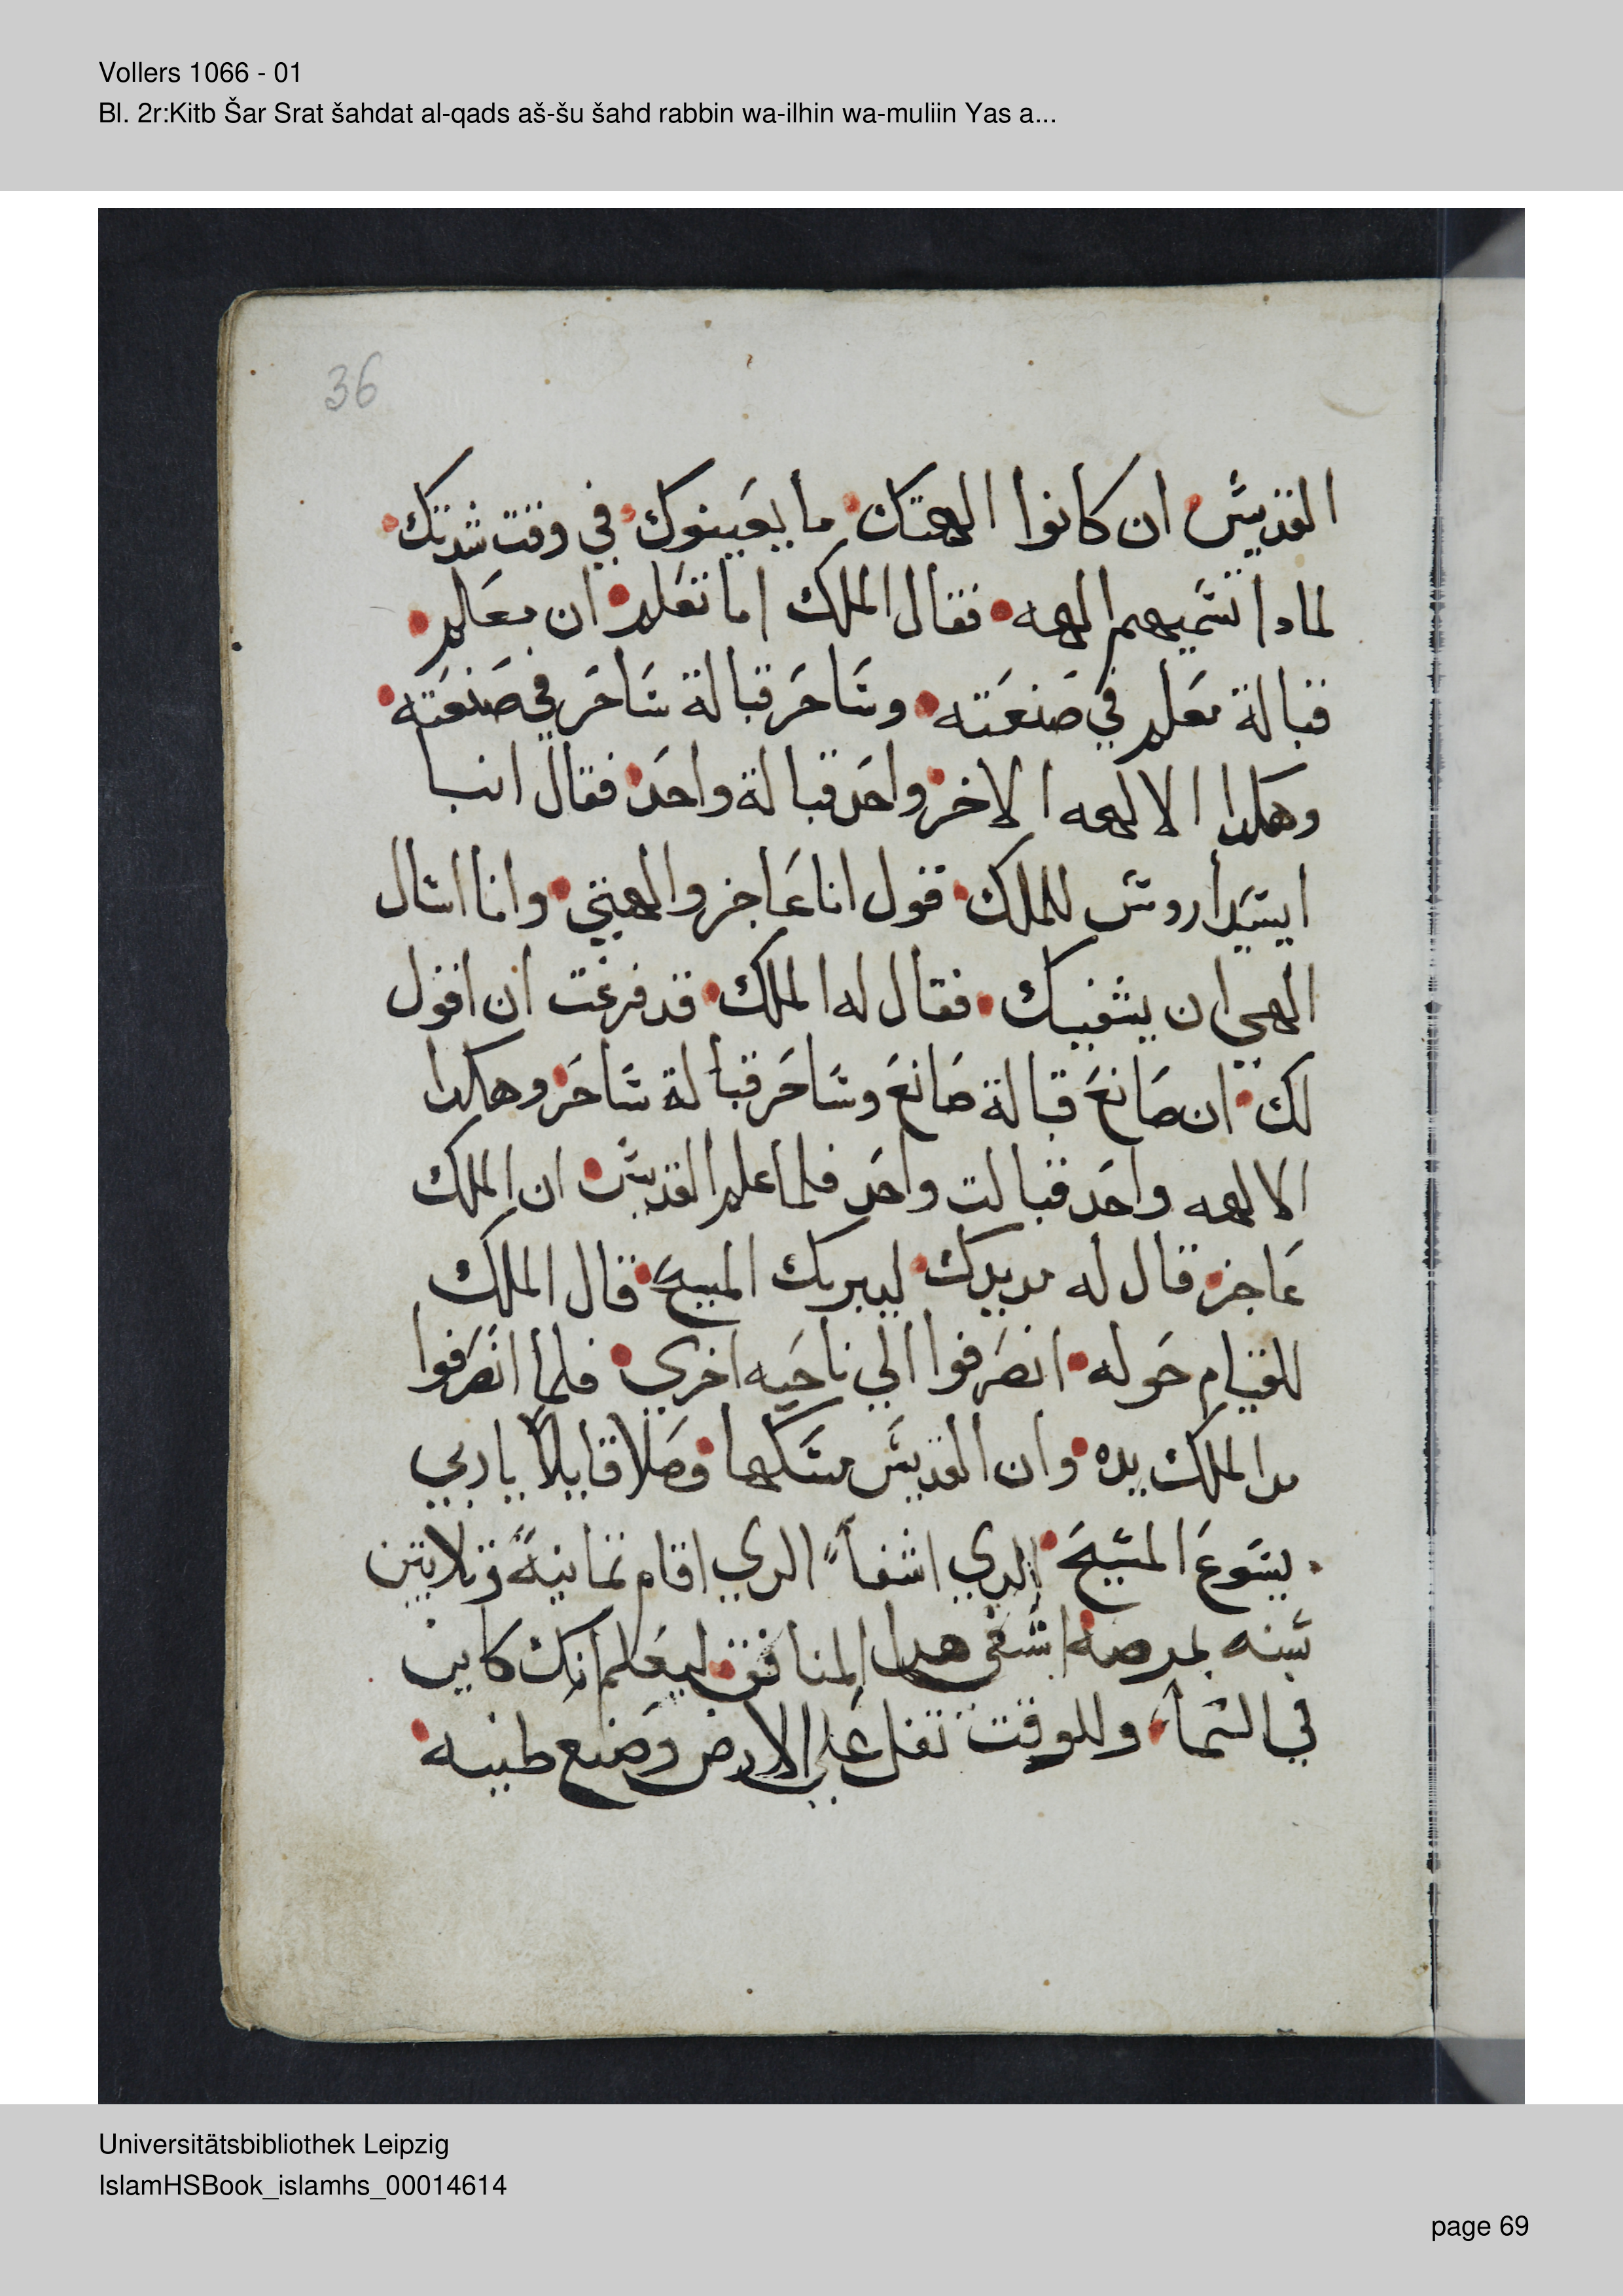 Vollers 1066 - 01
Bl. 2r:Kitb Šar Srat šahdat al-qads aš-šu šahd rabbin wa-ilhin wa-muliin Yas a...
36
القديس ان كانوا الهتك ما يعينوك في وقت شدتك
لمادا تسميهم الهه فقال الملك اما تعلم ان معلم
قبالة معلم في صنعته وساحر قبالة ساحر في صنعته
وهكدا الالهه الاخر واحد قبالة واحد فقال انبا
ايسيداروس للملك قول انا عاجز والهتي وانا اسال
الهي ان يشفيك فقال له الملك قد فرغت ان اقول
لك ان صانع قبالة صانع وساحر قبالة ساحر وهكدا
الالهه واحد قبالت واحد فلما علم القديس ان الملك
عاجز قال له مد يدك ليدبرك المسيح قال الملك
للقيام حوله انصرفوا الي ناحيه اخري فلما انصرفوا
مدا الملك يده وان القديس مسكها وصلا قايلاً يا ربي
يسوع المسيح الدي اشفاً الدي اقام تمانيةً وتلاتين
سنه بمرصه اشفى هدا المنافق ليعلم انك كاين
في السما وللوقت تفل علي الارض وصنع طينه
Universitätsbibliothek Leipzig
IslamHSBook_islamhs_00014614
page 69